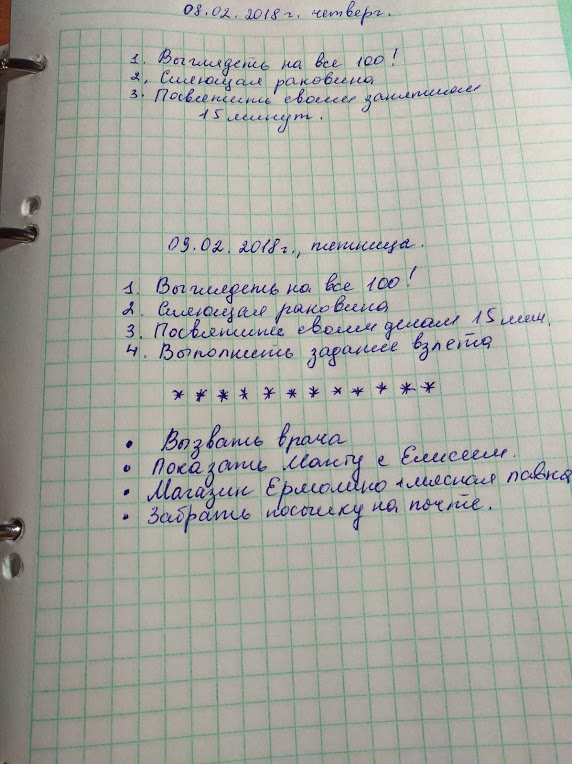 08.02.2018г. четверг.
1. Выглядеть на все 100!
2. Сияющая раковина
3. Посвятить своим занятиям
15 минут.
09.02.2018г., пятница.
1. Выглядеть на все 100!
2. Сияющая раковина
3. Посвятить своим делам 15 мин.
4. Выполнить задание взлёта
* * * * * * * * * * * *
• Вызвать врача
• Показать Манту с Елисеем.
• Магазин Ермолино + мясная лавка
• Забрать посылку на почте.